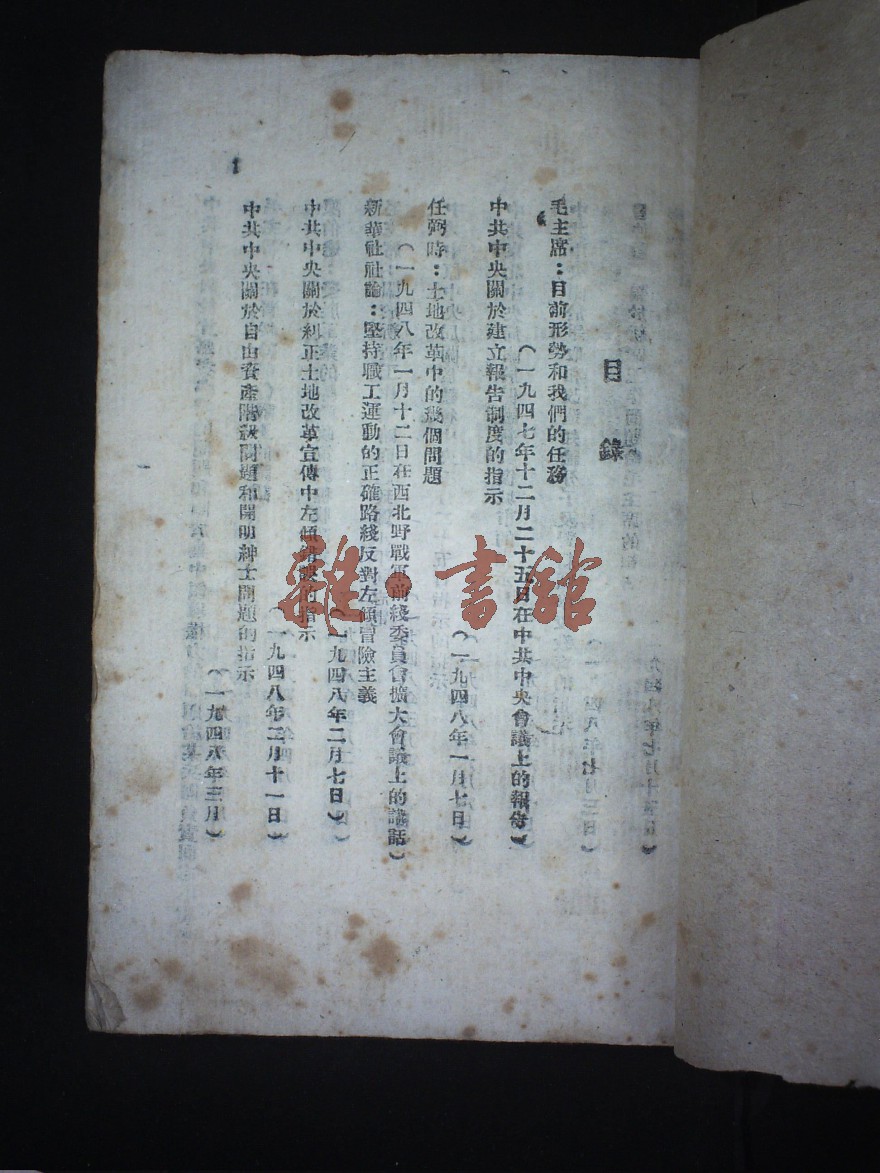 目錄
毛主席：目前形勢和我們的任務
（一九四七年十二月二十五日在中共中央會議上的報告）
中共中央關於建立報告制度的指示
（一九四八年一月七日）
任弼時：土地改革中的幾個問題
（一九四八年一月十二日在西北野戰軍前綫委員會擴大會議上的講話）
新華社社論：堅持職工運動的正確路綫反對左傾冒險主義
（一九四八年二月七日）
中共中央關於糾正土地改革宣傳中左傾錯誤的指示
（一九四八年二月十一日）
中共中央關於自由資產階級問題和開明紳士問題的指示
（一九四八年三月）
雜·書館